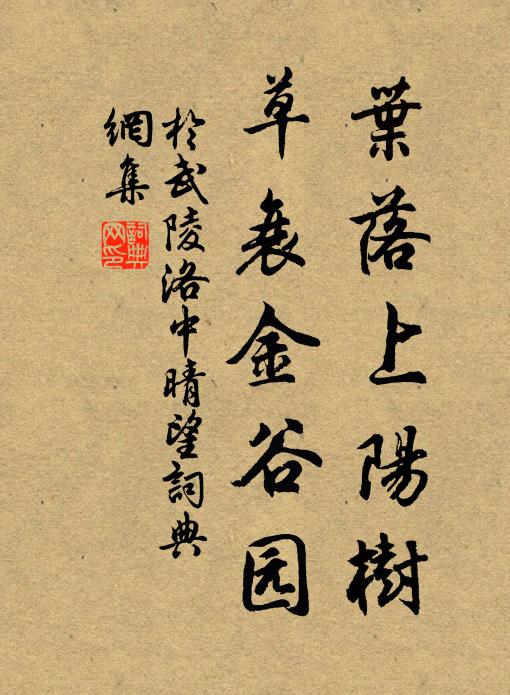 葉落上陽樹
草衰金谷园
於武陵洛中晴望詞典
網集
詞典网印